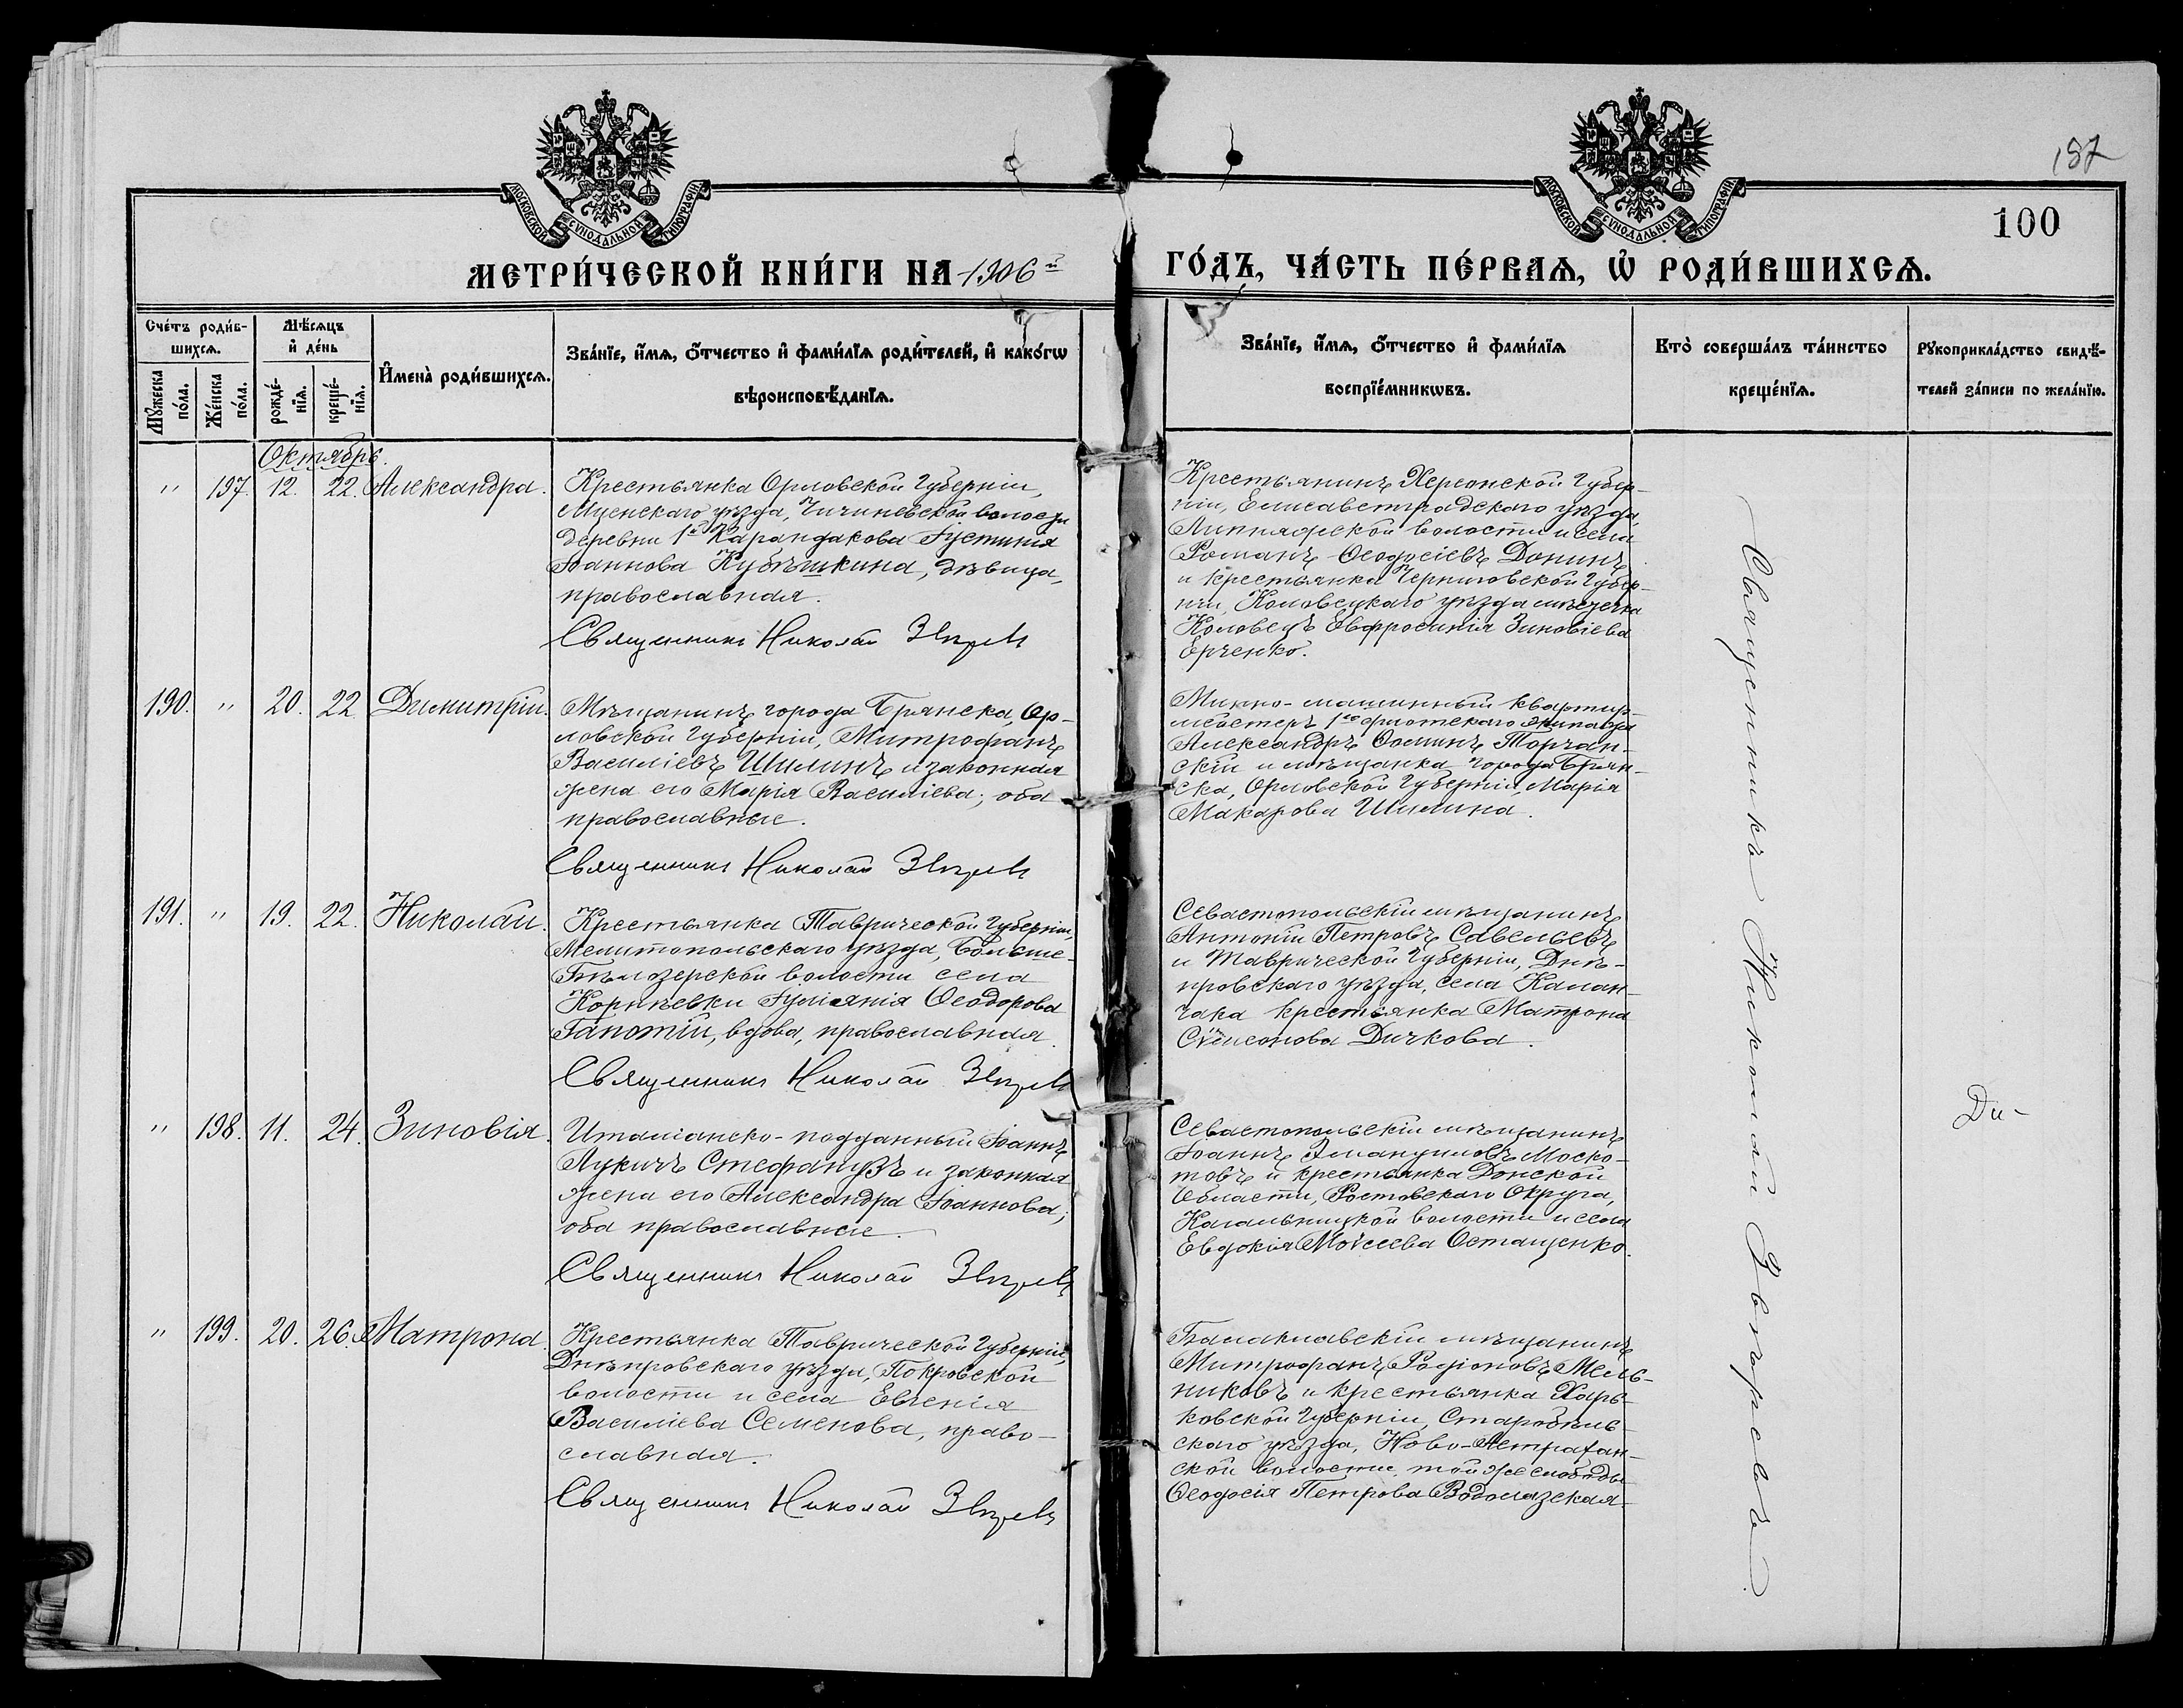 187
100
МОСКОВСКОЙ СѴНОДАЛЬНОЙ ТИПОГРАФІИ
МОСКОВСКОЙ СѴНОДАЛЬНОЙ ТИПОГРАФІИ
МЕТРИ́ЧЕСКОЙ КНИ́ГИ НА 1906й ГО́ДЪ, ЧА́СТЬ ПЕ́РВАѦ, Ѽ РОДИ́ВШИХСѦ.
Сче́тъ роди́в-
шихсѧ.
Мꙋ́жеска по́ла.
Же́нска по́ла.
Мѣ́сѧцъ
и҆ де́нь
рожде́-
нїѧ.
креще́-
нїѧ.
И҆мена̀ роди́вшихсѧ.
Зва́нїе, и҆́мѧ, ѻ҆́тчество и҆ фами́лїѧ роди́телей, и҆ како́гѡ
вѣроисповѣ́данїѧ.
Зва́нїе, и҆́мѧ, ѻ҆́тчество и҆ фами́лїѧ
воспрїе́мникѡвъ.
Кто̀ соверша́лъ та́инство
креще́нїѧ.
Рꙋкоприкла́дство свидѣ́-
телей за́писи по жела́нїю.
Октябрь.
" 197. 12. 22. Александра.
Крестьянка Орловской Губерніи,
Мценскаго уѣзда, волости
деревни 1й Карандакова Іустинія
Іоаннова Кубышкина, дѣвица,
православная.
Священникъ Николай Звѣревъ
Крестьянинъ Херсонской Губер-
ніи, Елисаветградскаго уѣзда,
Липняжской волости и села
Романъ Ѳеодосіевъ Донинъ
и крестьянка Черниговской Губер-
ніи, уѣзда мѣстечка
Евфросинія Зиновіева
Ерченко.
190. " 20. 22. Димитрій.
Мѣщанинъ города Брянска, Ор-
ловской Губерніи, Митрофанъ
Василіевъ Шилинъ и законная
жена его Марія Василіева; оба
православные.
Священникъ Николай Звѣревъ
Минно-машинный квартир-
мейстеръ 1го флотскаго экипажа
Александръ Ѳоминъ Торчан-
скій и мѣщанка города Брян-
ска, Орловской Губерніи, Марія
Макарова Шилина.
191. " 19. 22. Николай.
Крестьянка Таврической Губерніи,
Мелитопольскаго уѣзда, Больше-
Бѣлозерской волости села
Корнѣевки Іуліанія Ѳеодорова
Гапотій, вдова, православная.
Священникъ Николай Звѣревъ
Севастопольскій мѣщанинъ
Антоній Петровъ Савельевъ
и Таврической Губерніи, Днѣ-
провскаго уѣзда, села Калан-
чака крестьянка Матрона
Сѵмеонова Дичкова.
" 198. 11. 24. Зиновія.
Италіанско-подданный Іоаннъ
Лукичъ Стефануръ и законная
жена его Александра Іоаннова;
оба православные.
Священникъ Николай Звѣревъ
Севастопольскій мѣщанинъ
Іоаннъ Эмануиловъ Моско-
товъ и крестьянка Донской
Области, Ростовскаго Округа,
Кагальницкой волости и села
Евдокія Моѵсеева Остащенко.
Ди-
" 199. 20. 26. Матрона.
Крестьянка Таврической Губерніи,
Днѣпровскаго уѣзда, Покровской
волости и села Евгенія
Василіева Семенова, право-
славная.
Священникъ Николай Звѣревъ
Балаклавскій мѣщанинъ
Митрофанъ Родіоновъ Мель-
никовъ и крестьянка Харь-
ковской Губерніи, Старобѣль-
скаго уѣзда, Ново-Астрахан-
ской волости, той же слободы
Ѳеодосія Петрова Водолазская
Священникъ Николай Звѣревъ